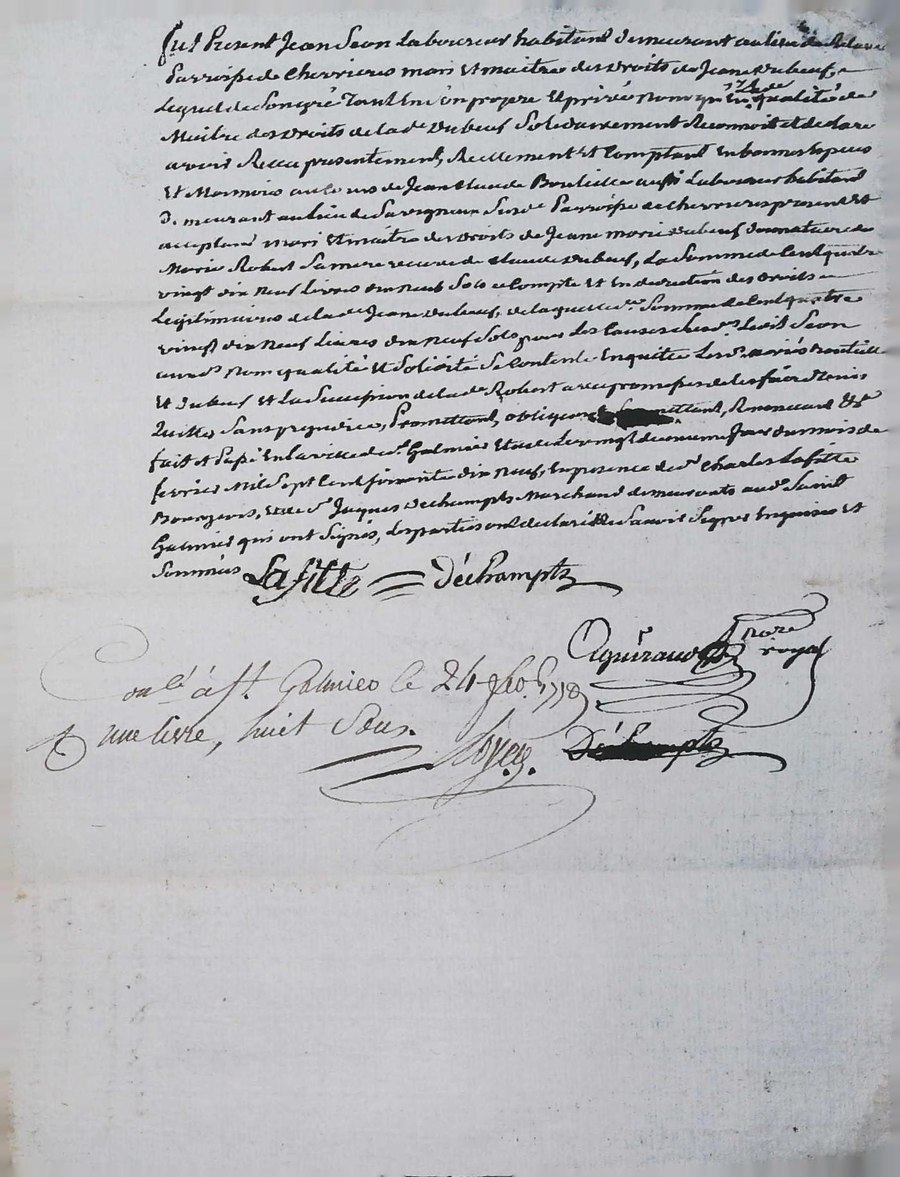 fut Present Jean Seon Laboureur habitant demeurant au lieu de
Parroisse de Chevrieres mari et maitre des droits de Jeanne dubeuf,
Lequel de Son gré Tant En Son propre et privé nom qu'en qualité de
Maitre des droits de lad.e dubeuf Solidairement Reconnoit et declare
avoir Recu presentement, Reellement et Comptant En bonnes Especes
Et Monnoie au Cours de Jean Claude aussi Laboureur habitant
demeurant au lieu de Savigneux Susd.e Parroisse de Chevrieres present et
acceptant mari et maitre des droits de Jeanne marie dubeuf donataire de
Marie Robert Sa mere veuve de Claude dubeuf, La Somme de Cent quatre
vingt dix neuf Livres dix neuf Sols a Compte et En deduction des droits
Legitimaires de lad.e Jeanne dubeuf, de laquelle d.e Somme de Cent quatre
vingt dix neuf Livres dix neuf Sols pour les Causes Led.it Seon
aux d.s nom qualité et Solidité Se Contente En quitte Les d.s mariés
Et dubeuf Et La Succession de lad.e Robert avec promesses de les faire tenir
Quittes Sans prejudice, Promettant, obligeant Renoncant &.a
fait et Passé En la ville de S.t Galmier Etude Le vingt deuxieme Jour du mois de
fevrier Mil Sept Cent Soixante dix neuf, En presence de S.r Charles Lafitte
Bourgeois, et de S.r Jaques Dechampts Marchand demeurants aud.t Saint
Galmier qui ont Signés, Les parties ont declaré ne Savoir Signer Enquises et
Sommées Lafitte Déchampts
nore
royal
à St. Galmier le 24
une livre, huit Sous.
Déchampts